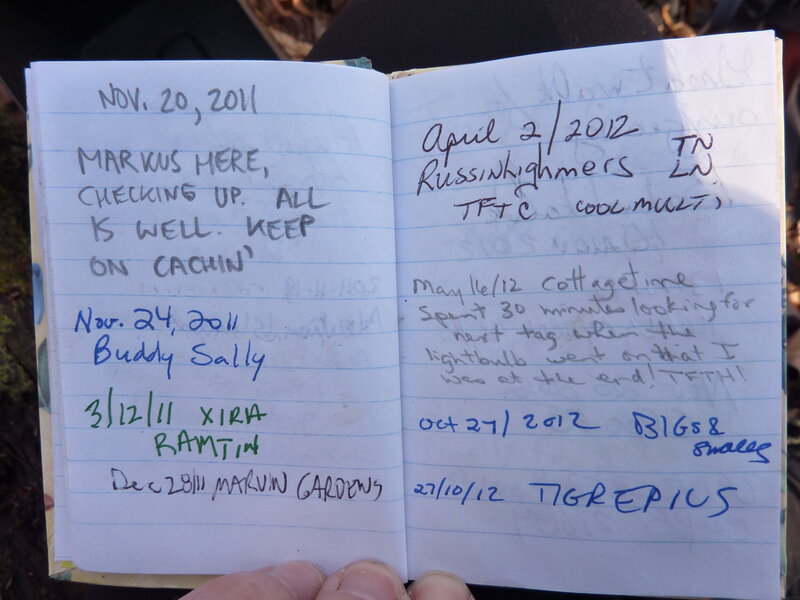 NOV. 20, 2011
MARKUS HERE,
CHECKING UP. ALL
IS WELL. KEEP
ON CACHIN'
Nov. 24, 2011
Buddy Sally
3/12/11 XIRA
RAMTIN
Dec 28/11 MARVIN GARDENS
April 2/2012
Russinhighmers TN
LN
TFTC COOL MULTI
May 16/12 Cottagetime
Spent 30 minutes looking for
next tag when the
lightbulb went on that I
was at the end! TFTH!
Oct 27/2012 BIGS &
smalls
27/10/12 TIGREPIUS